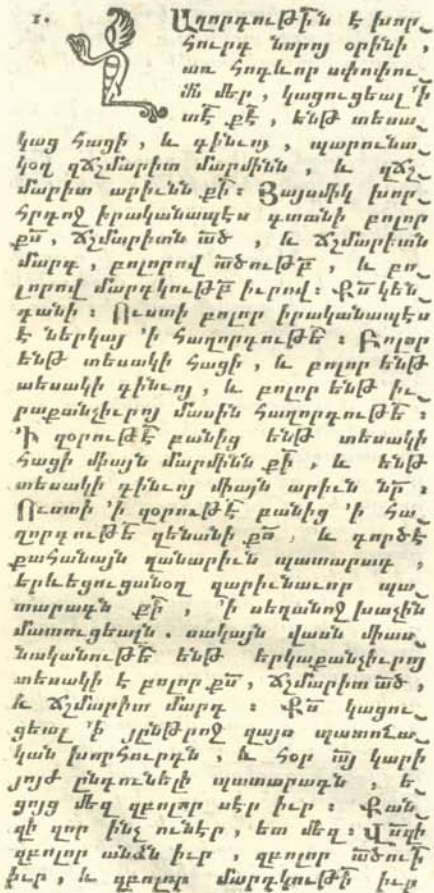 ը. Հաղորդութի՟ն է խոր֊
հուրդ նորոյ օրինի,
առ հոգևոր սփոփու
մ՟ն մեր, կացուցեալ ՚ի
տէ՟ քէ՟, ենթ տեսա֊
կաց հացի, և գինւոյ, պարունա֊
կօղ զճշմարիտ մարմինն, և զճշ֊
մարիտ արիւնն քի՟։ Յայսմիկ խոր֊
հրդոջ իրականապէս գտանի բոլոր
քս՟, ճշմարիտն ա՟ծ, և ճշմարիտն
մարդ, բոլորով ա՟ծութբ՟, և բո֊
լորով մարդկութբ՟ իւրով։ Քս՟ կեն֊
դանի։ Ուստի բոլոր իրականապէս
է ներկայ ՚ի հաղորդութե՟։ Բոլոր
ենթ տեսակի հացի, և բոլոր ենթ
տեսակի գինւոյ, և բոլոր ենթ իւ֊
րաքանչիւրոյ մասին հաղորդութե՟։
՚Ի զօրութէ՟ բանից ենթ տեսակի
հացի միայն մարմինն քի՟, և ենթ
տեսակի գինւոյ միայն արիւն նր՟։
Ուստի ՚ի զօրութէ՟ բանից ՚ի հա֊
ղորդութե՟ զենանի քս՟, և գործէ
քահանայն զանարիւն պատարագ,
երևեցուցանօղ զարիւնաւոր պա֊
տարագն քի՟, ՚ի սեղանոջ խաչին
մատուցեալն. սակայն վասն միաս֊
նականութե՟ ենթ երկաքանչիւրոյ
տեսակի է բոլոր քս՟, ճշմարիտ ա՟ծ,
և ճշմարիտ մարդ։ Քս՟ կացու֊
ցեալ ՚ի յընթրոջ զայս պատուա֊
կան խորհուրդն, և հօր ա՟յ կարի
յոյժ ընդունելի պատարագն, ե֊
ցոյց մեզ զբոլոր սէր իւր։ Քան֊
զի զոր ինչ ունէր, ետ մեզ։ Վա՟զի
զբոլոր անձն իւր, զբոլոր ա՟ծութի
իւր, և զբոլոր մարդկութի՟ իւր